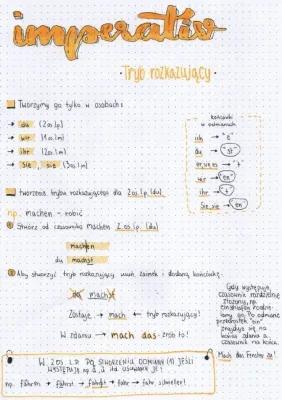 imperativ
Tryb rozkazujący
Tworzymy go tylko w osobach:
→ du (2os.l.p.)
→ wir (1os.l.m)
→ ihr (2os.l.m)
→ Sie, sie, (3os.l.m)
końcówki
w odmianach
ich → "e"
du → "st"
er, sie, es → "t"
wir → "en"
ihr → "t"
Sie, sie → "en"
tworzenie trybu rozkazującego dla 2os.l.p. (du)
np. machen - robić
Stwórz od czasownika machen 2.os.l.p. (du)
machen
du machst
Aby stworzyć tryb rozkazujący usuń zaimek i dodaną końcówkę.
du machst
Zostaje → mach ← tryb rozkazujący!
W zdaniu → mach das - zrób to!
Gdy występuje
czasownik rozdzielnie
złożony, np.
go. Po odmianie
przedrostek "ein"
znajduje się na
końcu zdania a
czasownik na końcu.
Mach das Fenster zu!
W 2os. l.p. po stworzeniu odmiany (1) jeśli
występuje np. ä, ü itd usuwamy je!
np. fahren → fährst → fährst → fahr → fahr, schneller!